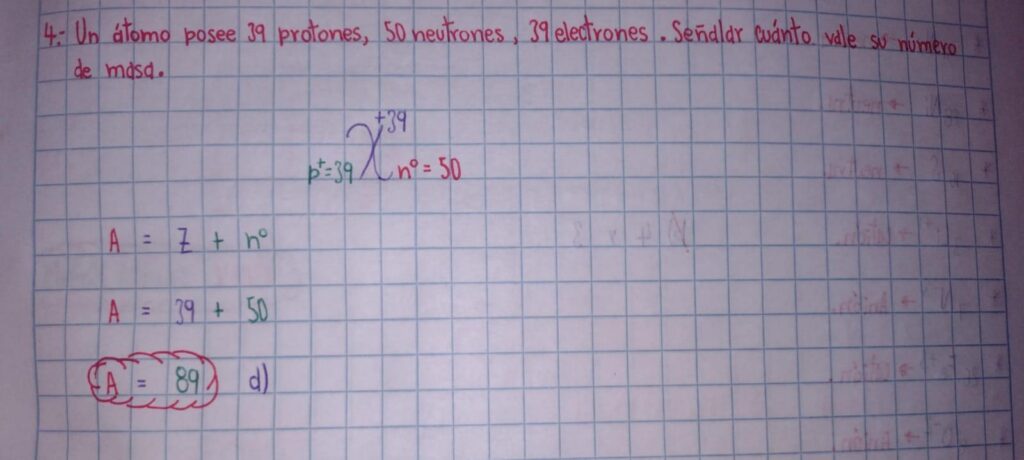 4.- Un átomo posee 39 protones, 50 neutrones, 39 electrones. Señalar cuánto vale su número
de masa.
+39
p⁺=39 X n° = 50
A = Z + n°
A = 39 + 50
A = 89 d)